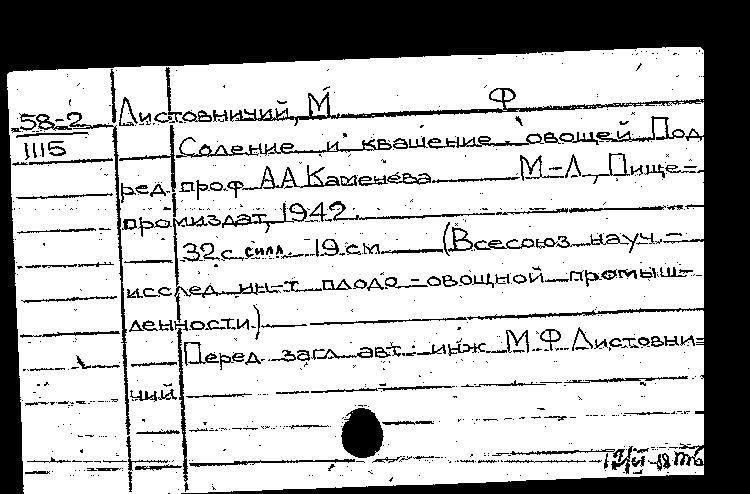 58-2 Листовничий, М Ф
1115 Соление и квашение овощей Под
ред. проф А А Каменева М-Л, Пище=
промиздат, 1942.
32 с илл. 19 см (Всесоюз науч.-
исслед ин-т плодо-овощной промыш=
ленности)
Перед загл авт: инж М Ф Листовни=
чий